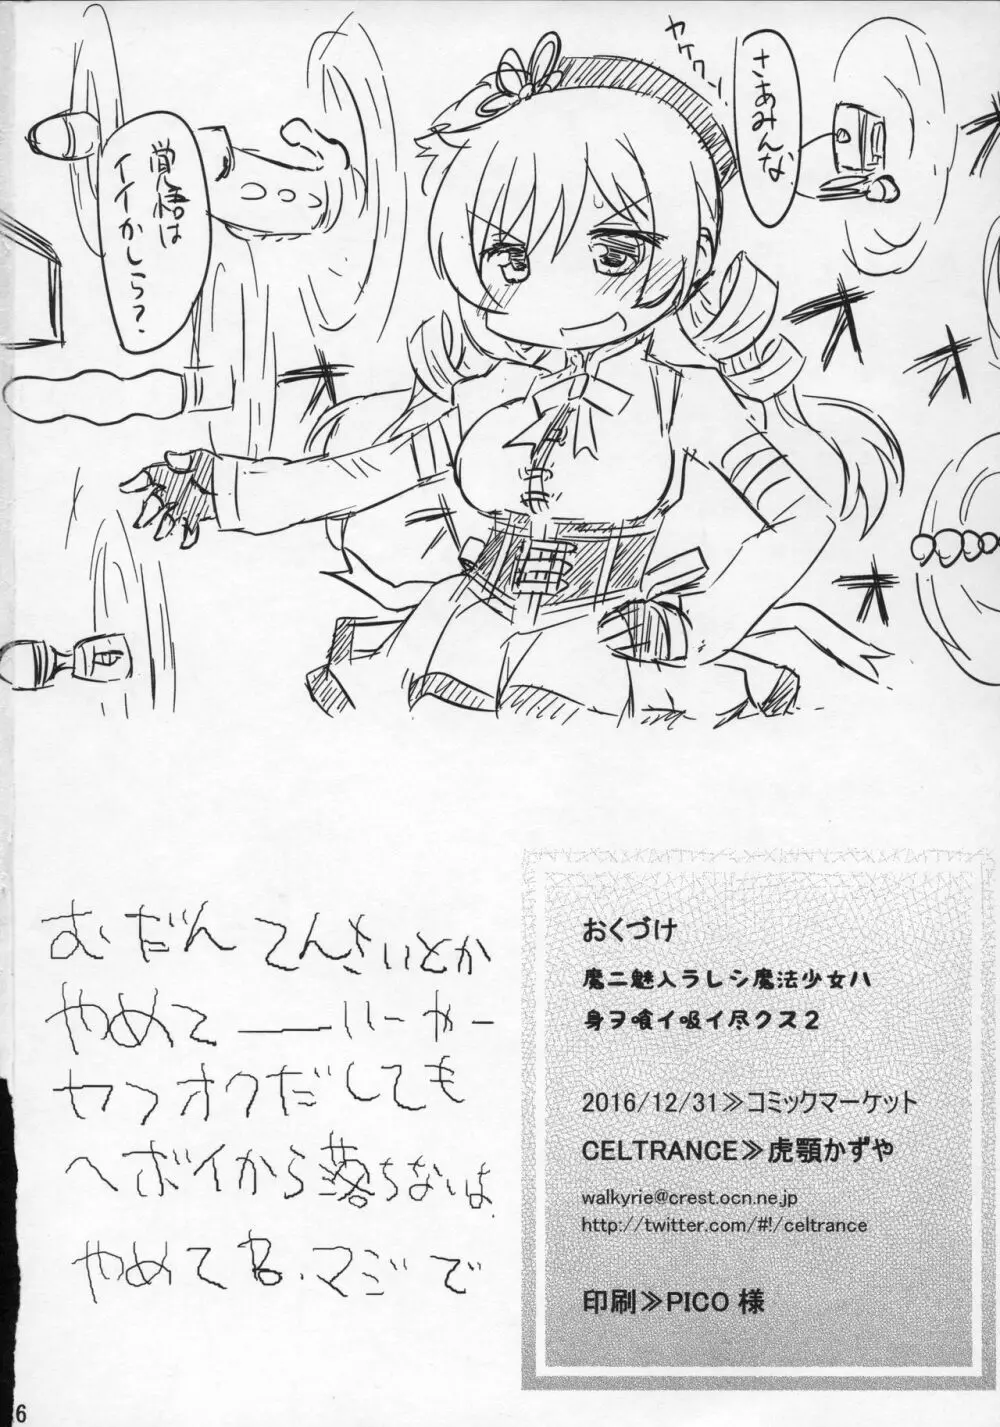 ヤケクソ
さあみんな
覚悟は
イイかしら?
むだんてんさいとか
やめて――いーかー
ヤフオクだしても
ヘボイから落ちないは
やめてね.マジで
おくづけ
魔ニ魅入ラレシ魔法少女ハ
身ヲ喰イ吸イ尽クス2
2016/12/31≫コミックマーケット
CELTRANCE≫虎顎かずや
walkyrie@crest.ocn.ne.jp
http://twitter.com/#!/celtrance
印刷≫PICO 様
6